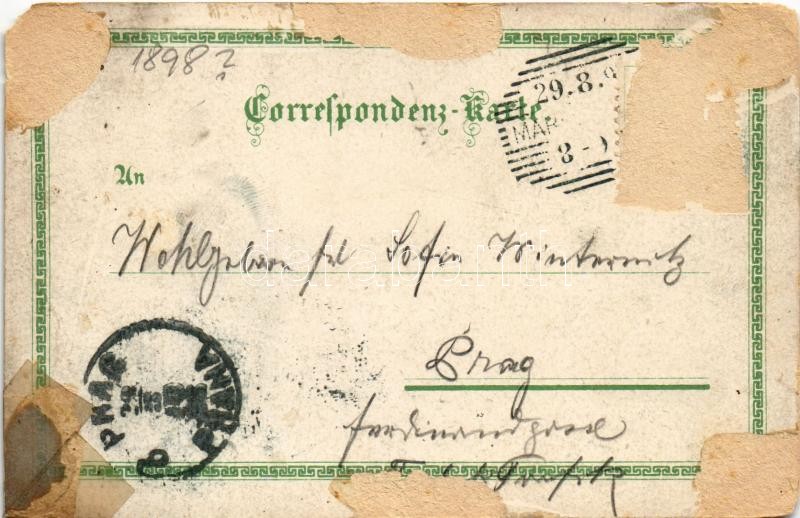 1898 ?
Correspondenz-Karte.
29.8.9
MAR
8-9
An
Wohlgeboren frl Sofie Winternitz
Prag
Ferdinand
PRAG PRAHA